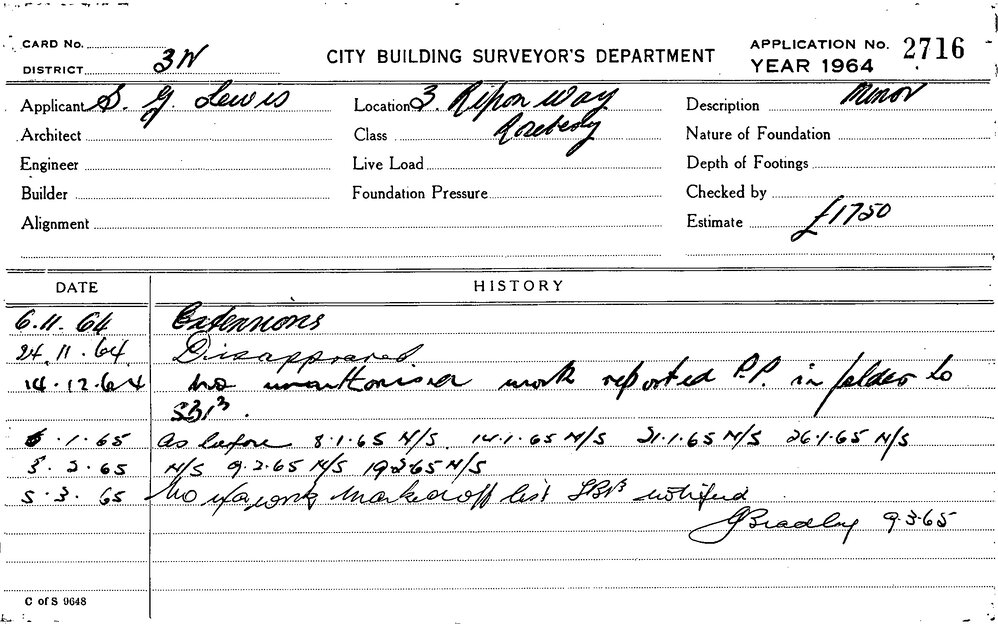 CARD No.
DISTRICT 3N
CITY BUILDING SURVEYOR'S DEPARTMENT
APPLICATION No. 2716
YEAR 1964
Applicant S. G. Lewis
Location 3. Ripon Way
Rosebery
Description Minor
Architect
Class
Nature of Foundation
Engineer
Live Load
Depth of Footings
Builder
Foundation Pressure
Checked by
Alignment
Estimate £1750
DATE HISTORY
6.11.64 Extensions
24.11.64 Disapproved
14.12.64 No unauthorised work reported P.P. in folder to
SBI³.
6.1.65 as before 8.1.65 N/S 14.1.65 N/S 21.1.65 N/S 26.1.65 N/S
3.2.65 N/S 9.2.65 N/S 19.2.65 N/S
5.3.65 No work marked off list notified
J Bradley 9.3.65
C of S 9648